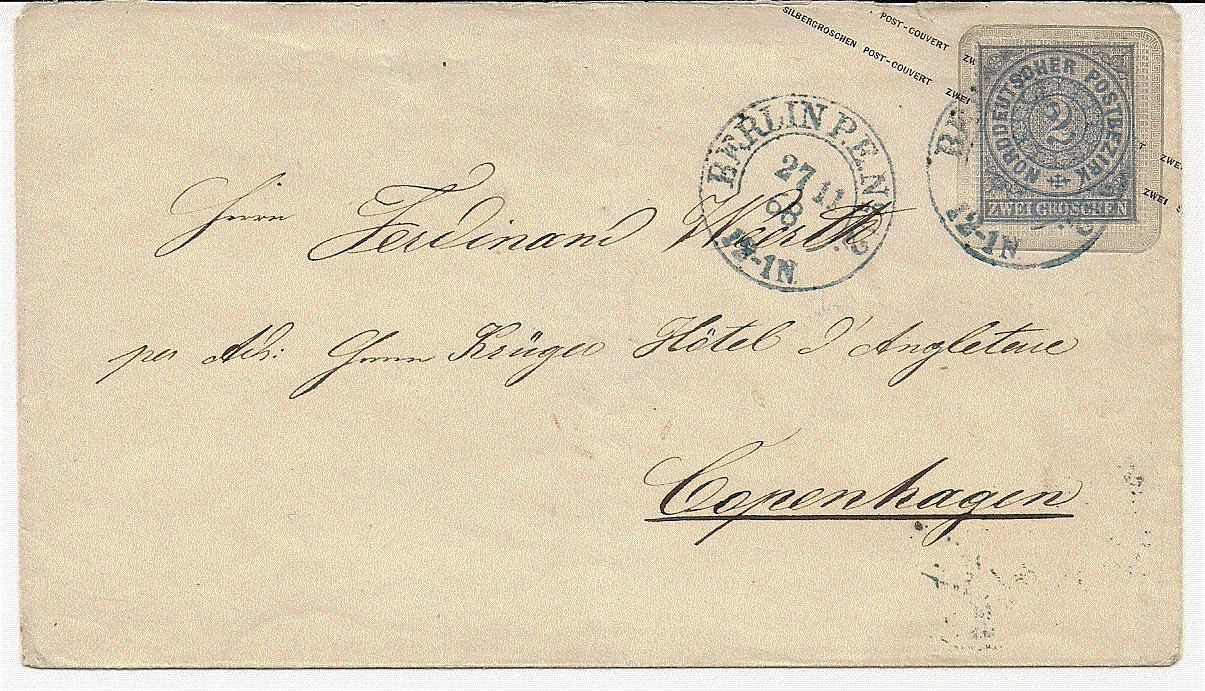 SILBERGROSCHEN POST-COUVERT ZWEI
POST-COUVERT ZW
NORDDEUTSCHER POSTBEZIRK
2
ZWEI GROSCHEN
ZWEI
ZWEI S
BERLIN P.E.
27 11
68
12-1N.
12-1N
Herrn Ferdinand
per Adr: Herrn Krüger Hôtel d'Angleterre
Copenhagen